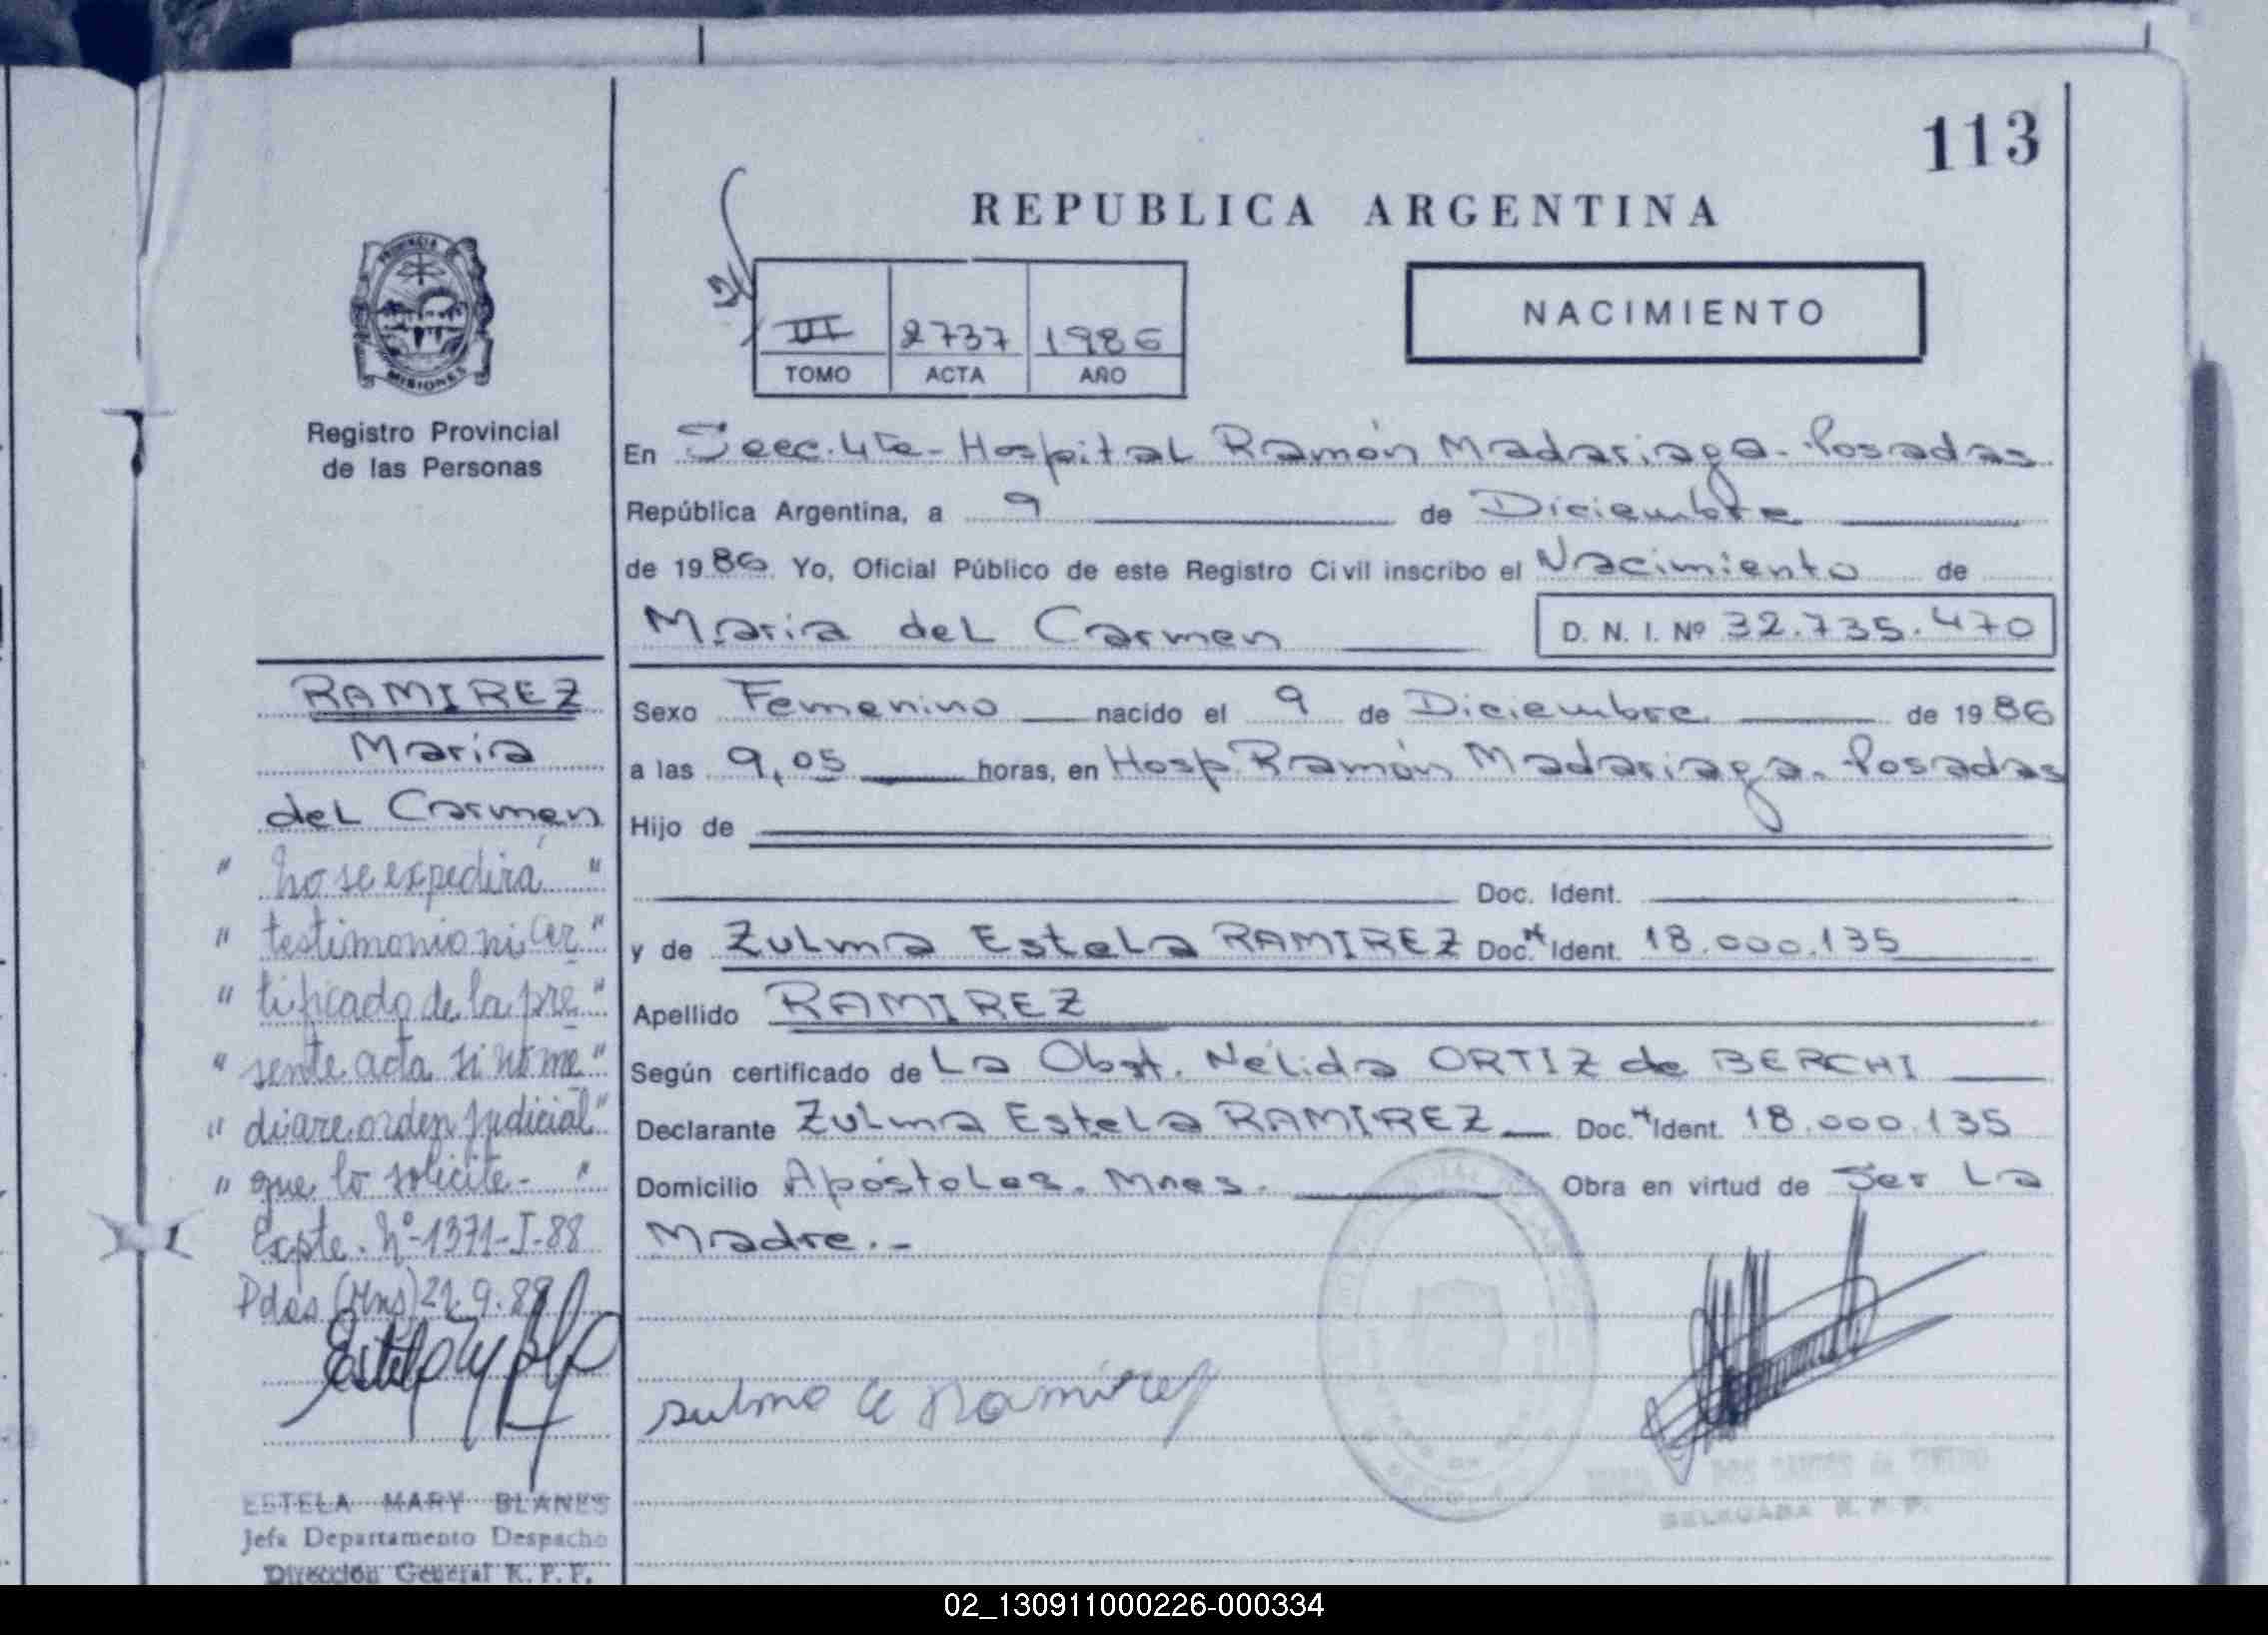 113
REPUBLICA ARGENTINA
PROVINCIA
MISIONES
Registro Provincial
de las Personas
III 2737 1986
TOMO ACTA AÑO
NACIMIENTO
En Secc. 4ta- Hospital Ramón Madariaga- Posadas
República Argentina, a 9 de Diciembre
de 1986 Yo, Oficial Público de este Registro Civil inscribo el Nacimiento de
Maria del Carmen D. N. I. Nº 32.735.470
Sexo Femenino nacido el 9 de Diciembre de 1986
a las 9,05 horas, en Hosp. Ramón Madariaga. Posadas
Hijo de
Doc. Ident.
y de Zulma Estela RAMIREZ Doc. Ident. 18.000.135
Apellido RAMIREZ
Según certificado de La Obst. Nélida ORTIZ de BERCHI
Declarante Zulma Estela RAMIREZ Doc. Ident. 18.000.135
Domicilio Apóstoles. Mnes. Obra en virtud de Ser La
Madre.-
RAMIREZ
María
del Carmen
" No se expedirá "
" testimonio ni cer "
" tificado de la pre "
" sente acta si no me "
" diare orden judicial "
" que lo solicite- "
Expte. Nº-1371-I-88
Pdas (Mns) 21.9.88
ESTELA MARY BLANES
Jefa Departamento Despacho
Dirección General R. P. P.
Zulma E Ramirez
DELEGADA R. P. P.
02_130911000226-000334